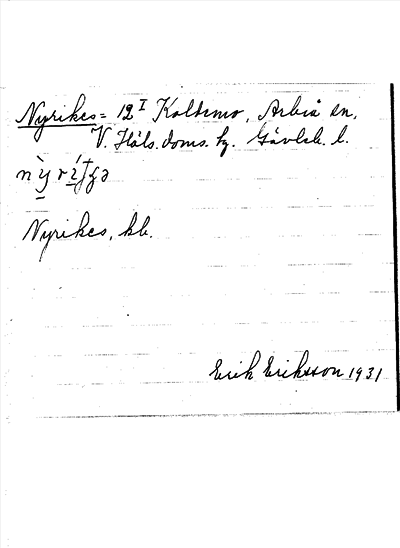 Nyrikes = 12 I Koldemo, Arbrå sn,
V. Häls. doms. hg. Gävleb. l.
Nyrikes, kb.
Erik Eriksson 1931